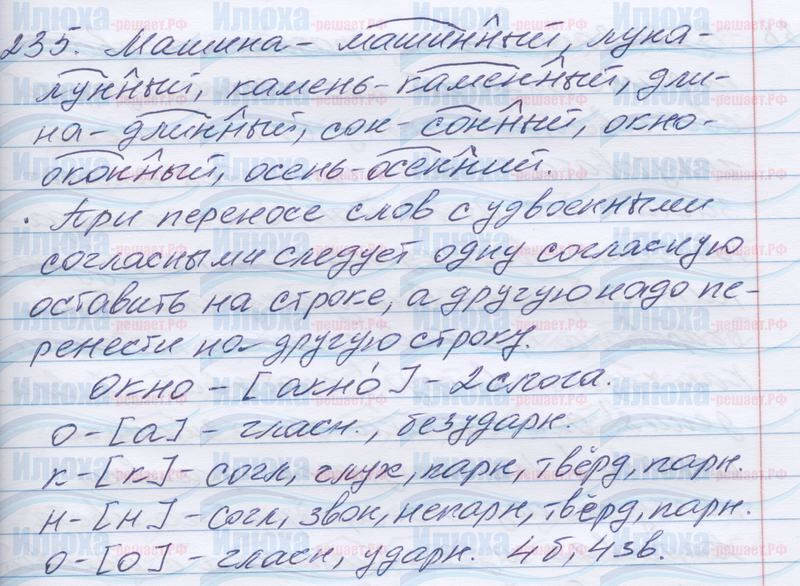 235. Машина - машинный, луна -
лунный, камень - каменный, дли-
на - длинный, сон - сонный, окно -
оконный, осень - осенний.
· При переносе слов с удвоенными
согласными следует одну согласную
оставить на строке, а другую надо пе-
ренести на другую строку.
Окно - [акно́] - 2 слога.
о - [а] - гласн., безударн.
к - [к] - согл, глух, парн, твёрд, парн.
н - [н] - согл, звон, непарн, твёрд, парн.
о - [о] - гласн, ударн. 4 б, 4 зв.